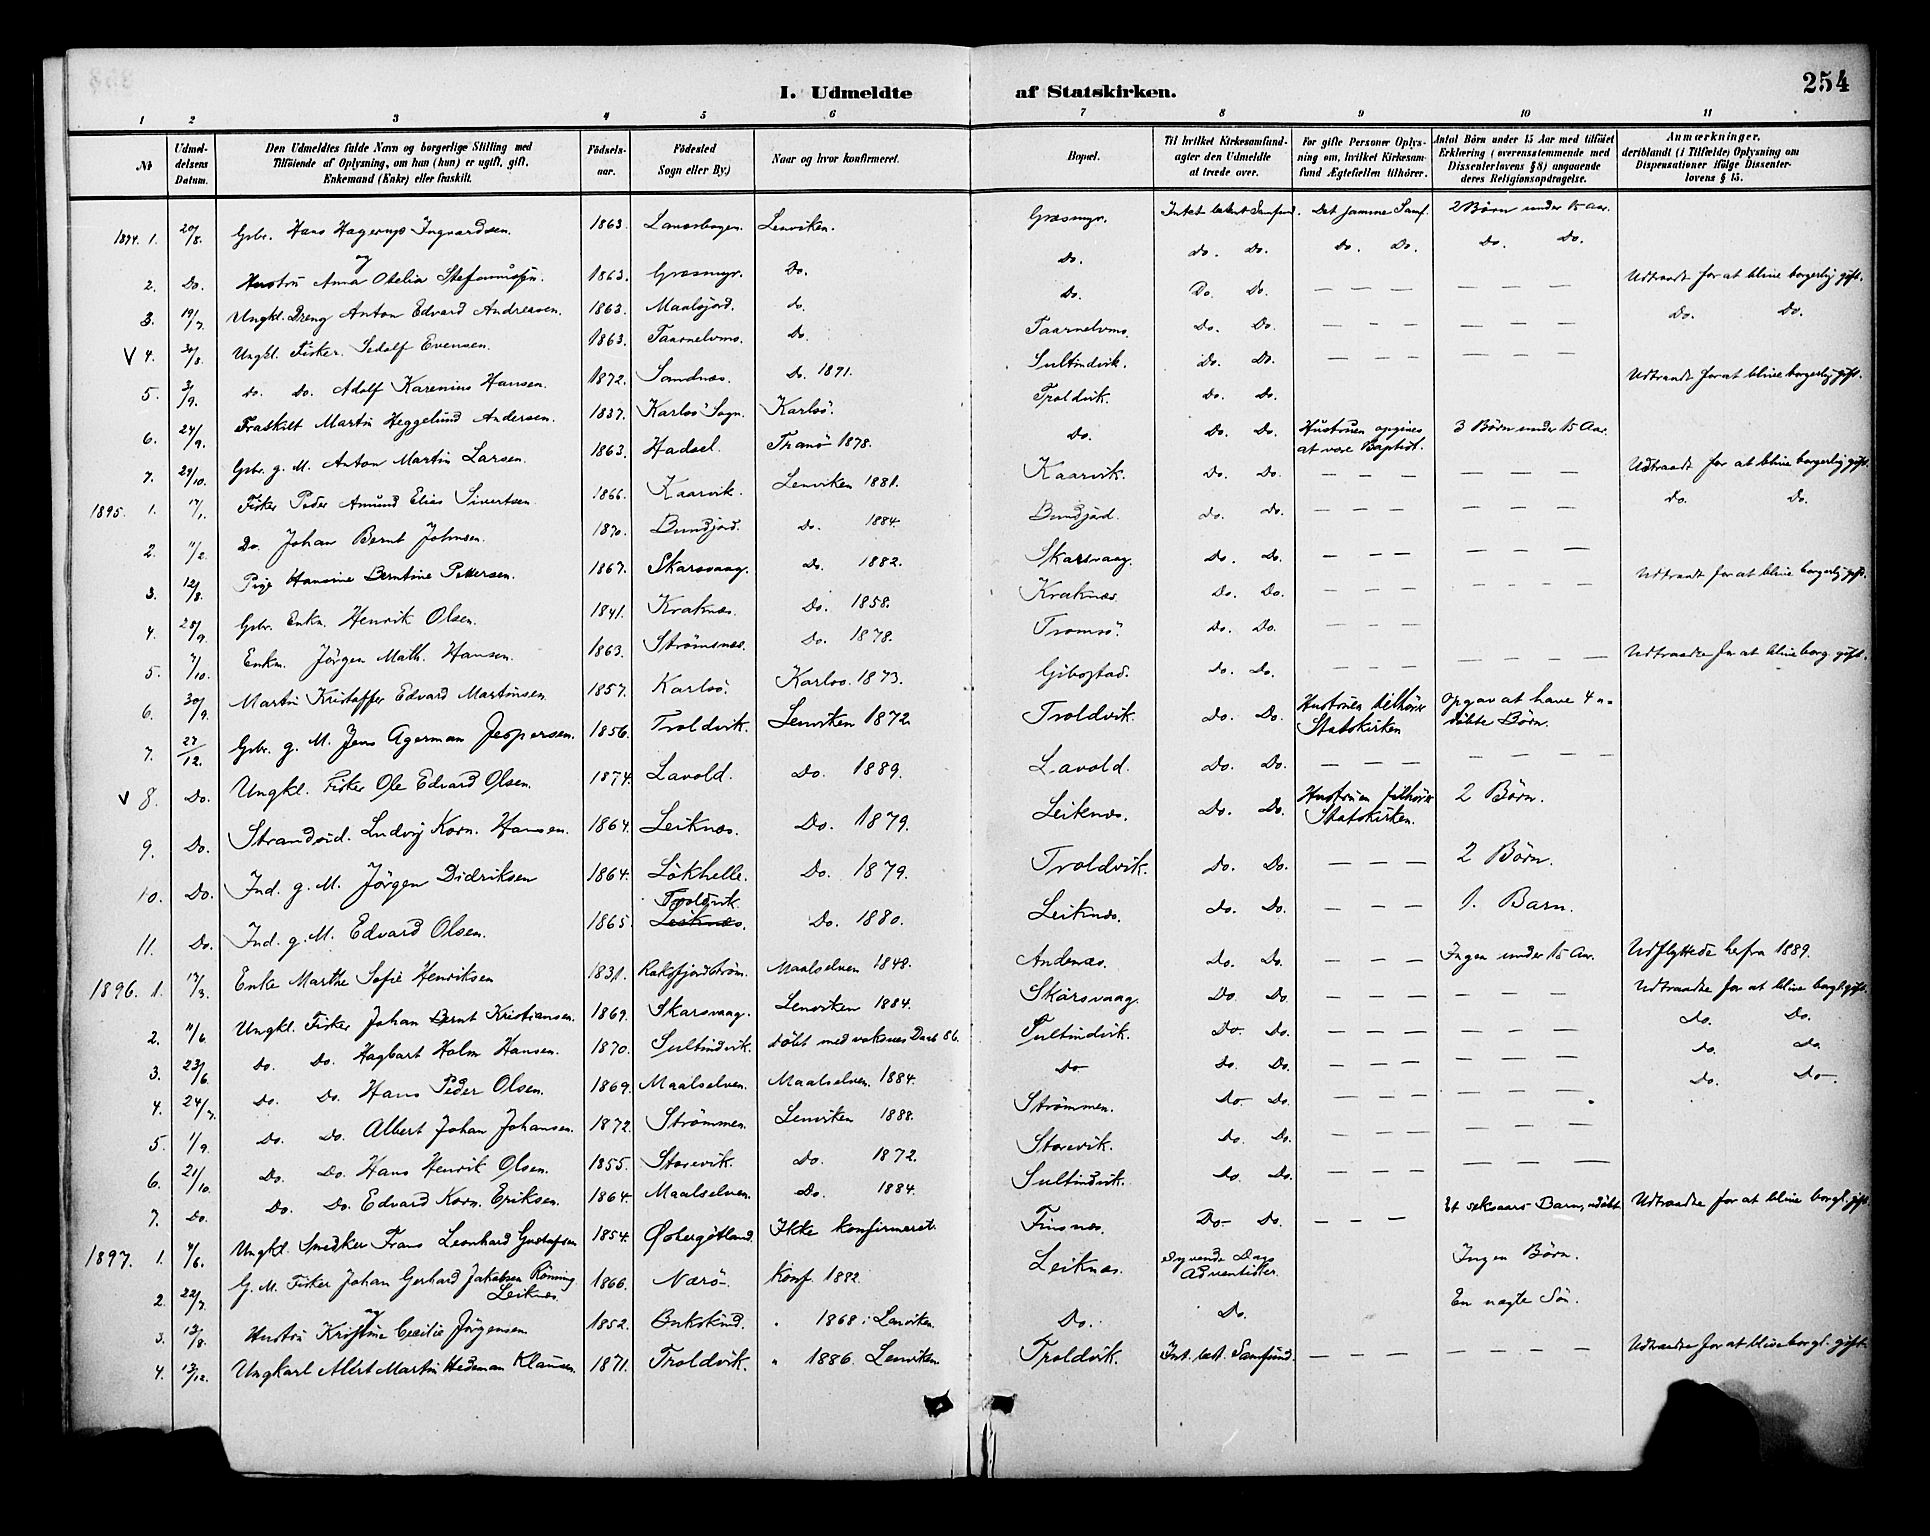 254
I. Udmeldte af Statskirken.
1 2 3 4 5 6 7 8 9 10 11
No
Udmeldelsens Datum.
Den Udmeldtes fulde Navn og borgerlige Stilling med
Tilföiende af Oplysning, om han (hun) er ugift, gift,
Enkemand (Enke) eller fraskilt.
Födselsaar.
Födested
Sogn eller By.)
Naar og hvor konfirmeret.
Bopæl.
Til hvilket Kirkesamfund
agter den Udmeldte
at træde over.
For gifte Personer Oplys-
ning om, hvilket Kirkesam-
fund Ægtefællen tilhörer.
Antal Börn under 15 Aar med tilföiet
Erklæring (overensstemmende med
Dissenterlovens § 8) angaaende
deres Religionsopdragelse.
Anmærkninger,
deriblandt (i Tilfælde) Oplysning om
Dispensationer ifölge Dissenter-
lovens § 15.
1894. 1. 20/8. Gbr. Hans Hagerup Ingvardsen. 1863. Lenviken. Græsmyr. Intet bestemt Samfund. Det samme Samf. 2 Börn under 15 Aar.
2. Do. Hustru Anna Otelia 1863. Græsmyr. Do. Do. Do. Do. Do. Do. Do. Do.
3. 19/7. Ungkl. Dreng Anton Edvard Andreasen. 1863. Maalsjord. do. Do. Do. Do. — — — — — — — Udtraadt for at blive borgerlig gift.
V 4. 30/8. Ungkl. Fisker. Sedolf Evensen. 1863. Taarnelvmo. Do. Taarnelvmo. Do. Do. — — — — — — — Do. Do.
5. 3/9. do. do. Adolf Karenius Hansen. 1872. Sandnæs. Do. 1891. Sultindvik. Do. Do. — — — — — — —
6. 24/9. Fraskilt Martin Heggelund Andersen. 1837. Karlsö Sogn. Karlsö. Troldvik. Do. Do. Udtraadt for at blive borgerlig gift.
7. 29/10. Gbr. g. M. Anton Martin Larsen. 1863. Hadsel. Tranö 1878. Do. Do. Do. Hustruen opgives at være Baptist. 3 Börn under 15 Aar.
1895. 1. 17/1. Fisker Peder Amund Elias Sivertsen. 1866. Kaarvik. Lenviken 1881. Kaarvik. Do. Do. — — — — — — — Udtraadt for at blive borgerlig gift.
2. 11/2. Do. Johan Bernt Johnsen. 1870. Bundjord. Do. 1884. Bundjord. Do. Do. — — — — — — — Do. Do.
3. 12/8. Pige Hansine Berntine Pettersen. 1867. Skarsvaag. Do. 1882. Skarsvaag. Do. Do. — — — — — —
4. 28/9. Gbr. Enkm. Henrik Olsen. 1841. Kraknæs. Do. 1858. Kraknæs. Do. Do. — — — — — — — Udtraadt for at blive borgerlig gift.
5. 7/10. Enkm. Jörgen Math. Hansen. 1863. Strömsnæs. Do. 1878. Tromsö. Do. Do. — — —
6. 30/9. Martin Kristoffer Edvard Martinsen 1857. Karlsö. Karlsö. 1873. Gibostad. Do. Do. — — — — — — — Udtraadte for at blive borg. gift.
7. 27/12. Gbr. g. M. Jens Agerman Jespersen. 1856. Troldvik. Lenviken 1872. Troldvik. Do. Do. Hustruen tilhörer Statskirken Opgav at have 4 u- döbte Börn.
V 8. Do. Ungkl. Fisker Ole Edvard Olsen. 1874. Lavold. Do. 1889. Lavold. Do. Do. — — — — — — —
9. Do. Strandsid. Ludvig Korn. Hansen. 1864. Leiknæs. Do. 1879. Leiknæs. Do. Do. Hustruen tilhörer Statskirken. 2 Börn.
10. Do. Ind. g. M. Jörgen Didriksen 1864. Lökhelle. Do. 1879. Troldvik. Do. Do. — — — 2 Börn.
11. Do. Ind. g. M. Edvard Olsen. 1865. Troldvik Leiknæs. Do. 1880. Leiknæs. Do. Do. — — — 1. Barn.
1896. 1. 17/3. Enke Marthe Sofie Henriksen 1831. Raksfjordström. Maalselven 1848. Andenæs. Do. Do. — — — Ingen under 15 Aar. Udflyttede hefra 1889.
2. 11/6. Ungkl. Fisker Johan Bernt Kristiansen. 1869. Skarsvaag. Lenviken 1884. Skarsvaag. Do Do. — — — — — — — Udtraadte for at blive borgl. gift.
3. 23/6. Do. Do. Hagbart Holm Hansen. 1870. Sultindvik. döbt med voksnes Daab 86. Sultindvik. Do- Do. — — — — — — — do. Do.
4. 24/7. Do. Do. Hans Peder Olsen. 1869. Maalselven. Maalselven. 1884. Do- Do. Do. — — — — — — — do. do.
5. 1/9. Do. Do. Albert Johan Johansen. 1872. Strömmen. Lenviken 1888. Strömmen. Do- Do. — — — — — — — do. Do-.
6. 21/10. Do. Do. Hans Henrik Olsen. 1855. Storevik. Do. 1872. Storevik. Do. Do. — — — — — — —
7. Do. Do. Do. Edvard Korn. Eriksen. 1864. Maalselven. Do. 1884. Sultindvik. Do. Do. — — — — — — —
1897. 1. 4/6. Ungkl. Snedker Frans Leonhard Gustafsen 1854. Östergötland. Ikke konfirmeret. Finsnæs. Do- Do. — — — Et seksaars Barn, udöbt Udtraadte for at blive borgl. gift.
2. 22/7. G. M. Fisker Johan Gerhard Jakobsen Rönning Leiknes. 1866. Nærö. Konf. 1882. Leiknæs. Syvende Dags Adventister. Ingen Börn.
3. 13/8. Hustru Kristine Cecilie Jörgensen 1852. " 1868 i Lenviken. Do. Do. En uægte Sön.
4. 13/12. Ungkarl Albert Martin Hedeman Klausen. 1871. Troldvik. " 1886. Lenviken. Troldvik. Int. best. Samfund. — — — — — — — Udtraadte for at blive borgl. gift.